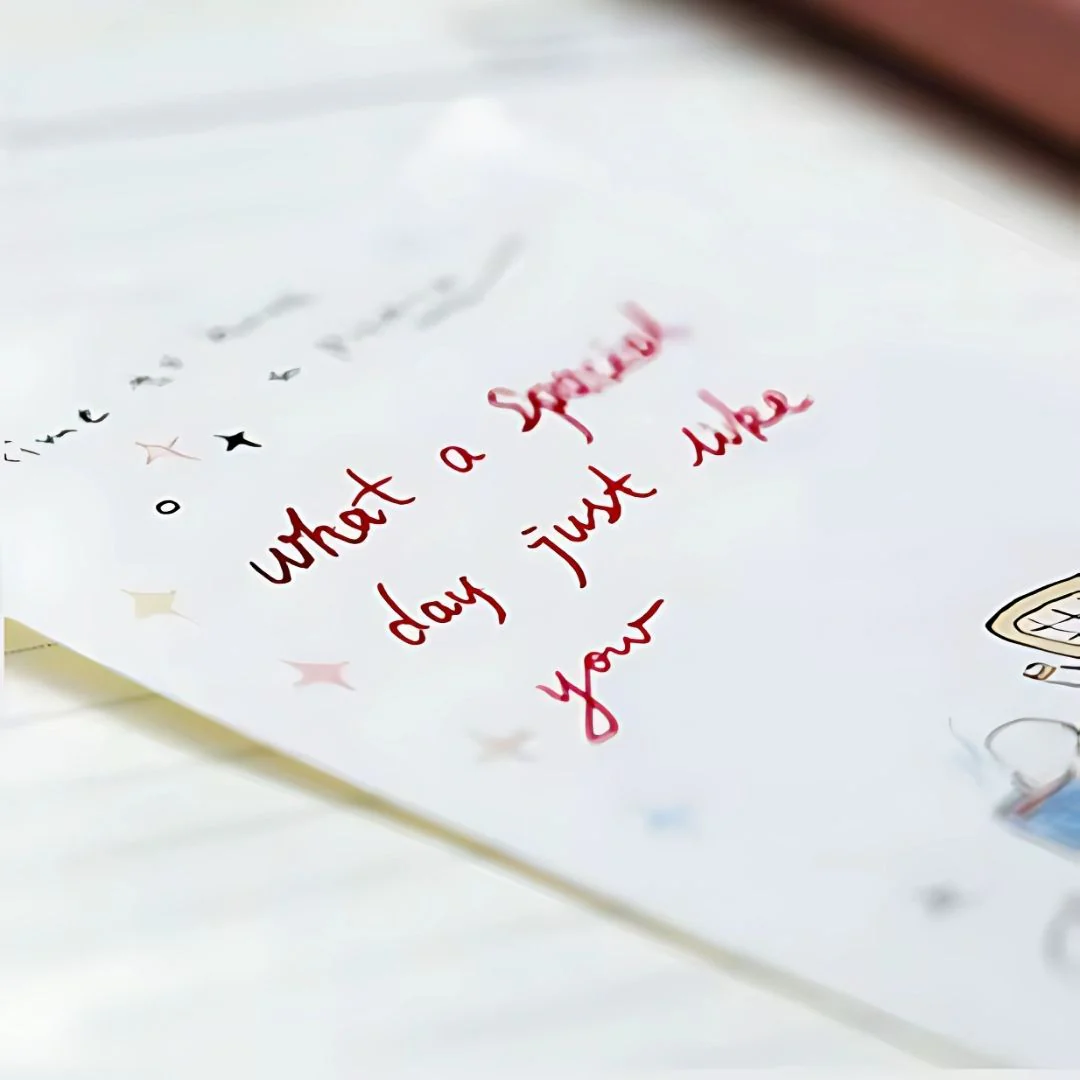 time
What a special
day just like
you